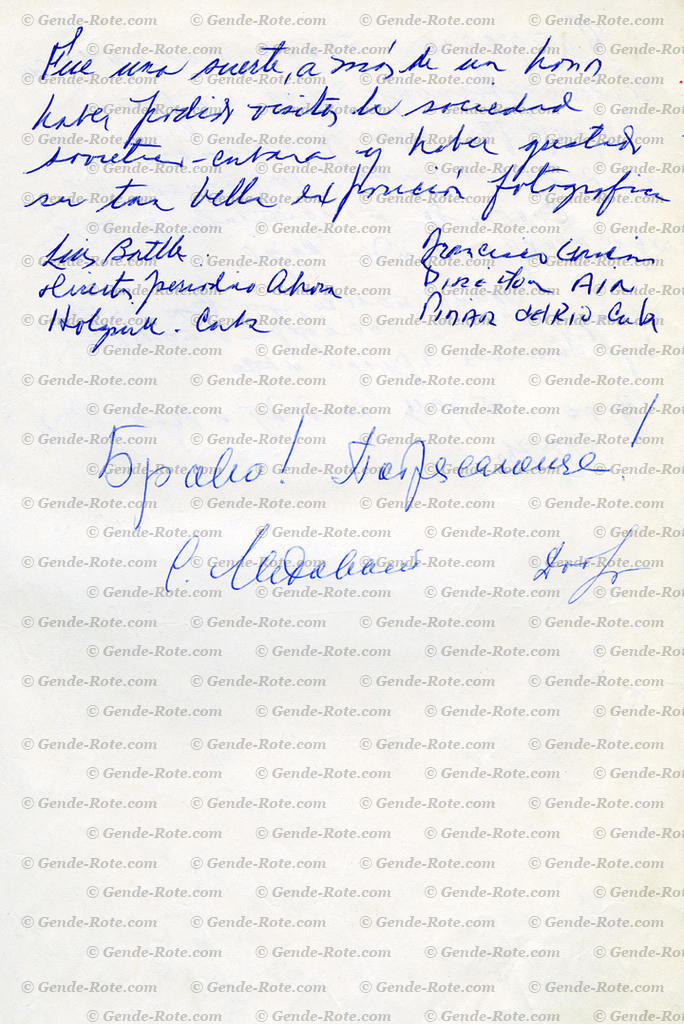 Fue una suerte, a más de un honor
haber podido visitar la sociedad
sovietica-cubana y haber gustado
su tan bella exposición fotografica
Luis Batlle
Director periodico Ahora
Holguin. Cuba
Francisco
Director AIN
PINAR del RIO Cuba
Браво! Потрясающе!
С.
© Gende-Rote.com